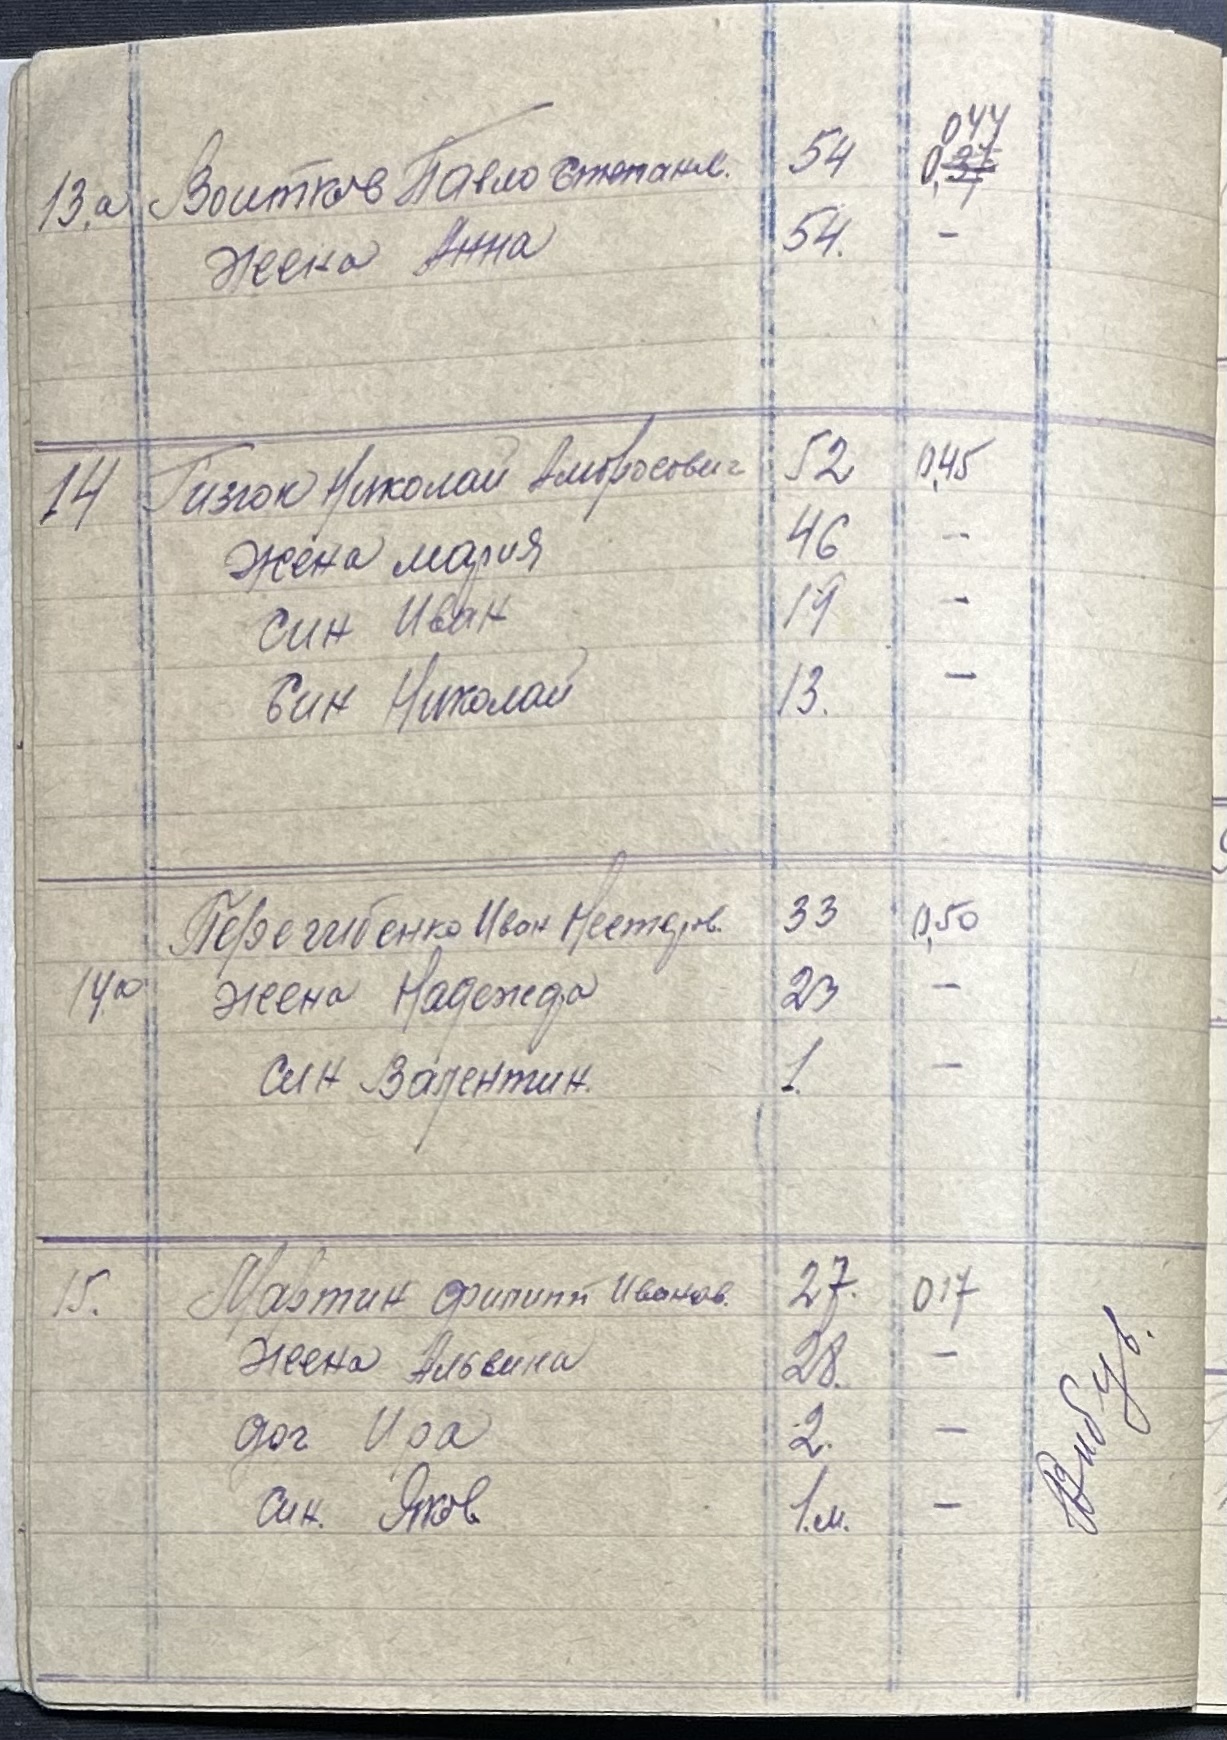 13.а Воитков Павло Степанов. 54 0,44 0,37
Жена Анна 54. -
14 Гизгок Николай Амбросович 52 0,45
Жена Мария 46 -
Син Иван 19 -
Син Николай 13. -
Перегибенко Иван Нестеров. 33 0,50
14а Жена Надежда 23 -
Син Валентин. 1. -
15. Мартин Филипп Иванов. 27. 0,17
Жена Альвина 28. -
Доч Ира 2. -
Син. Яков 1.м. -
Вибув.